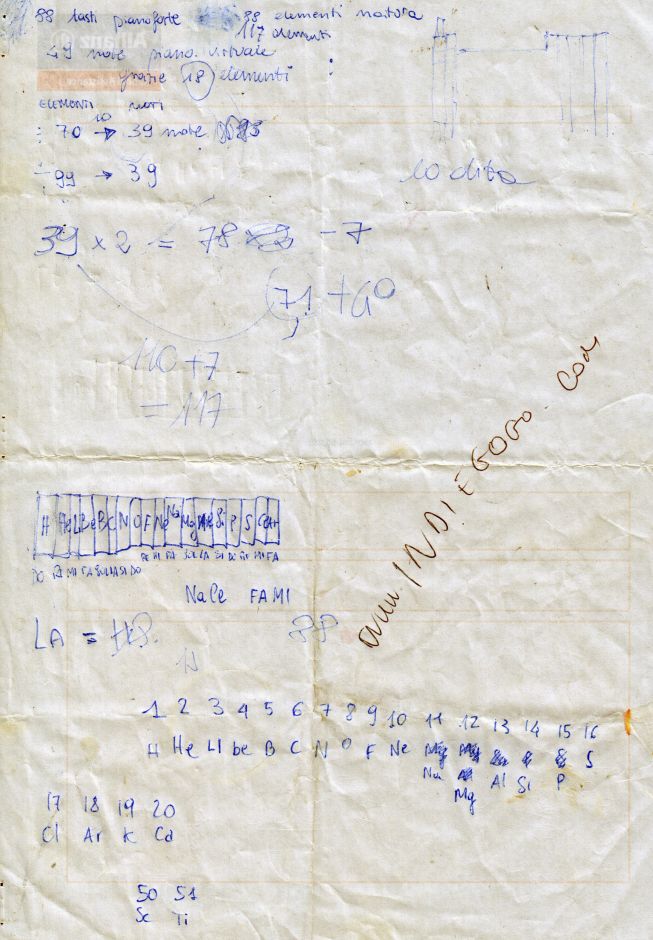 88 tasti pianoforte 88 elementi natura
117 elementi
49 note piano virtuale
grazie 18 elementi
ELEMENTI
10
70 → 39 note
99 → 39
10 dita
39 x 2 = 78 - 7
71 + 40
110 + 7
= 117
www INDIEGOGO. Com
H He Li Be B C N O F Ne Na Mg Al Si P S Cl Ar
RE MI FA SOL LA SI DO RE MI FA
DO RE MI FA SOL LA SI DO
NaCl FA MI
LA = 88
1 2 3 4 5 6 7 8 9 10 11 12 13 14 15 16
H He LI be B C N O F Ne Na Mg Al Si P S
17 18 19 20
Cl Ar K Ca
50 51
Sc Ti